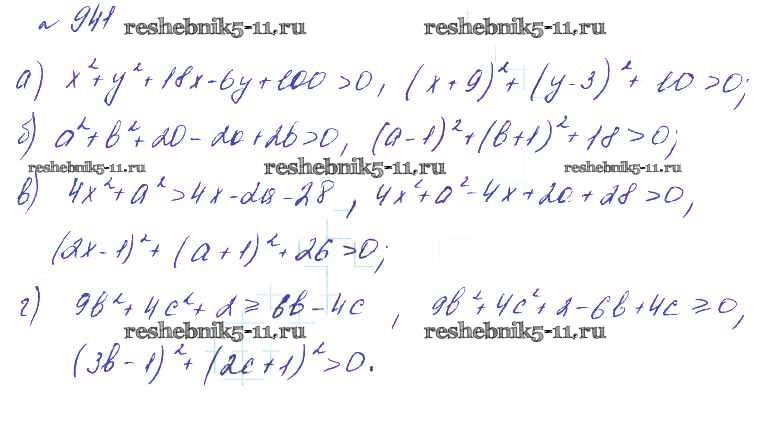 № 941 reshebnik5-11.ru reshebnik5-11.ru
а) x²+y²+18x-6y+100>0, (x+9)²+(y-3)²+10>0;
б) a²+b²+20-2a+2b>0, (a-1)²+(b+1)²+18>0;
reshebnik5-11.ru reshebnik5-11.ru reshebnik5-11.ru
в) 4x²+a²>4x-2a-28, 4x²+a²-4x+2a+28>0,
(2x-1)²+(a+1)²+26>0;
г) 9b²+4c²+2≥6b-4c, 9b²+4c²+2-6b+4c≥0,
reshebnik5-11.ru reshebnik5-11.ru
(3b-1)²+(2c+1)²>0.